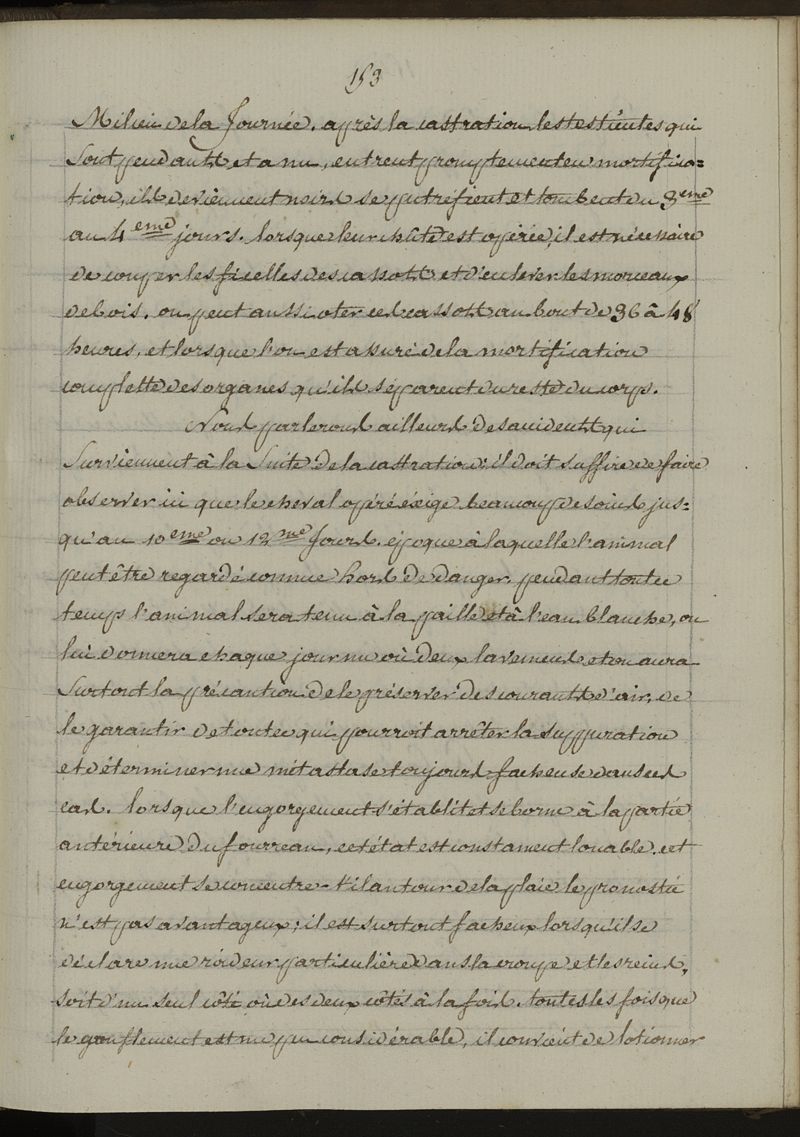 153
Milieu de la Journée. après la castration les testicules qui
Sont pendants et a nu, entrent promptement en mortifica=
tion, ils deviennent noirs se putréfient et tombent du 3eme
au 4eme jours. lorsque leur chûte est opérée, il est nécessaire
de couper les ficelles des cassots et d'enlever les morceaux
de bois. on peut aussi oter ces cassots au bout de 36 à 48
heures, et lorsque l'on est assuré de la mortification
complette des organes qu'ils séparent du reste du corps.
Nous parlerons ailleurs des accidents qui
Surviennent à la Suite de la castration: il doit suffire de faire
observer ici que le cheval opéré éxige beaucoup de soins jus=
qu'au 10eme ou 12me Jours. époque à laquelle l'animal
peut être regardé comme hors de danger. pendant tout ce
temps l'animal sera tenu à la paille et à l'eau blanche, on
lui donnera chaque jour un où deux lavemens et on aura
Surtout la précaution de le préserver des courants d'air, de
le garantir de tout ce qui pourroit arrêter la suppuration
et déterminer une métastase toujours facheuse dans ces
cas. lorsque l'engorgement s'établit et se borne à la partie
antérieure du fourreau, cet état est constament louable. cet
engorgement se concentre-t'il autour de la plaie le pronostic
n'est pas avantageux; il est surtout facheux lorsqu'il se
déclare une roideur particulière dans la croupe et les reins,
soit d'un seul côté où des deux côtés à la fois. toutes les fois que
le gonflement est un peu considérable, il convient de lotionner